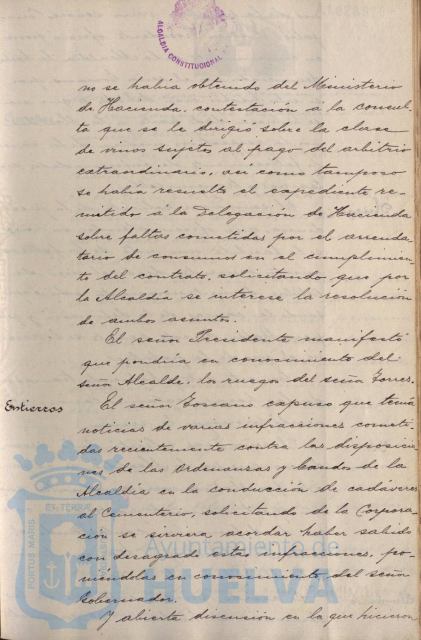 ALCALDÍA CONSTITUCIONAL
no se había obtenido del Ministerio
de Hacienda, contestación á la consul-
ta que se le dirigió sobre la clase
de vinos sujetos al pago del arbitrio
extraordinario, así como tampoco
se había resuelto el expediente re-
mitido á la Delegación de Hacienda
sobre faltas cometidas por el arrenda-
tario de consumos en el cumplimien-
to del contrato, solicitando que por
la Alcaldía se interese la resolución
de ambos asuntos.
El señor Presidente manifestó
que pondría en conocimiento del
señor Alcalde, los ruegos del señor Torres.
Entierros
El señor Toscano expuso que tenía
noticias de varias infracciones cometi-
das recientemente contra las disposicio-
nes de las Ordenanzas y bandos de la
Alcaldía en la conducción de cadáveres
al Cementerio, solicitando de la Corpora-
ción se sirviera acordar haber sabido
con desagrado estas infracciones, po-
niéndolas en conocimiento del señor
Gobernador.
Y abierta discusión en la que hicieron
PORTUS MARIS
Ayuntamiento de
HUELVA